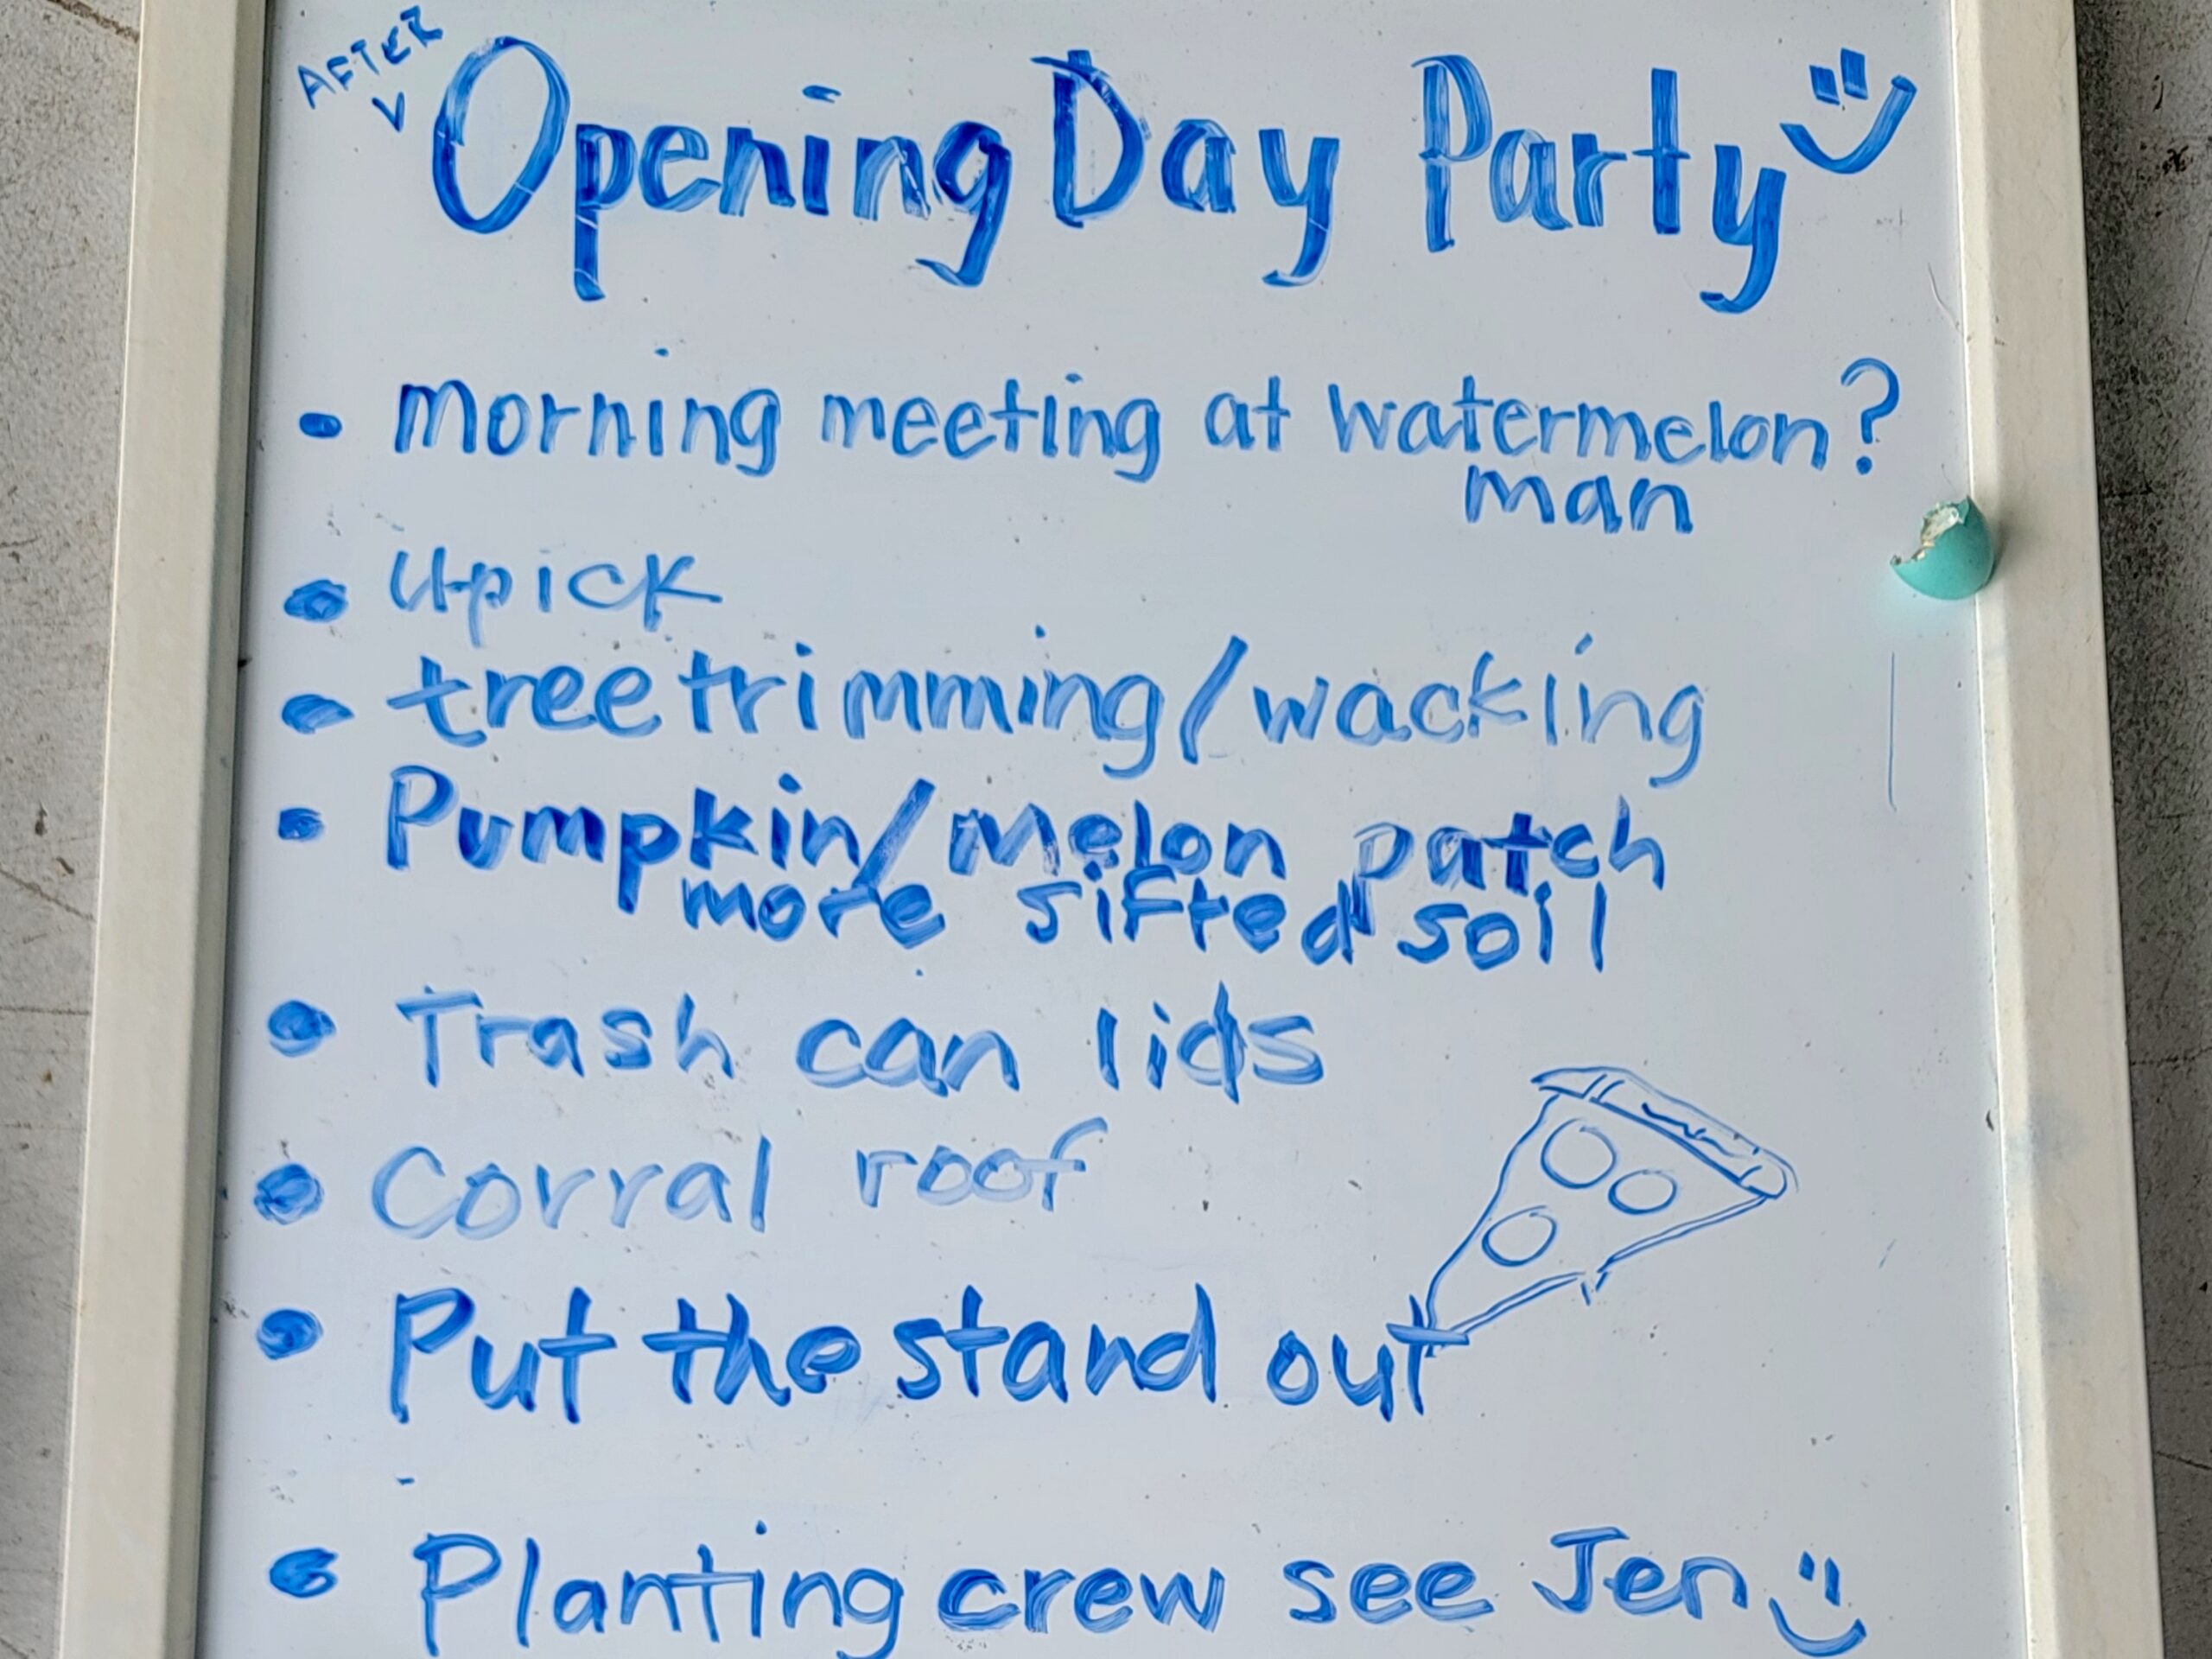 AFTER
Opening Day Party
• Morning meeting at watermelon?
man
• Upick
• tree trimming/wacking
• Pumpkin/Melon patch
more sifted soil
• Trash can lids
• Corral roof
• Put the stand out
• Planting crew see Jen